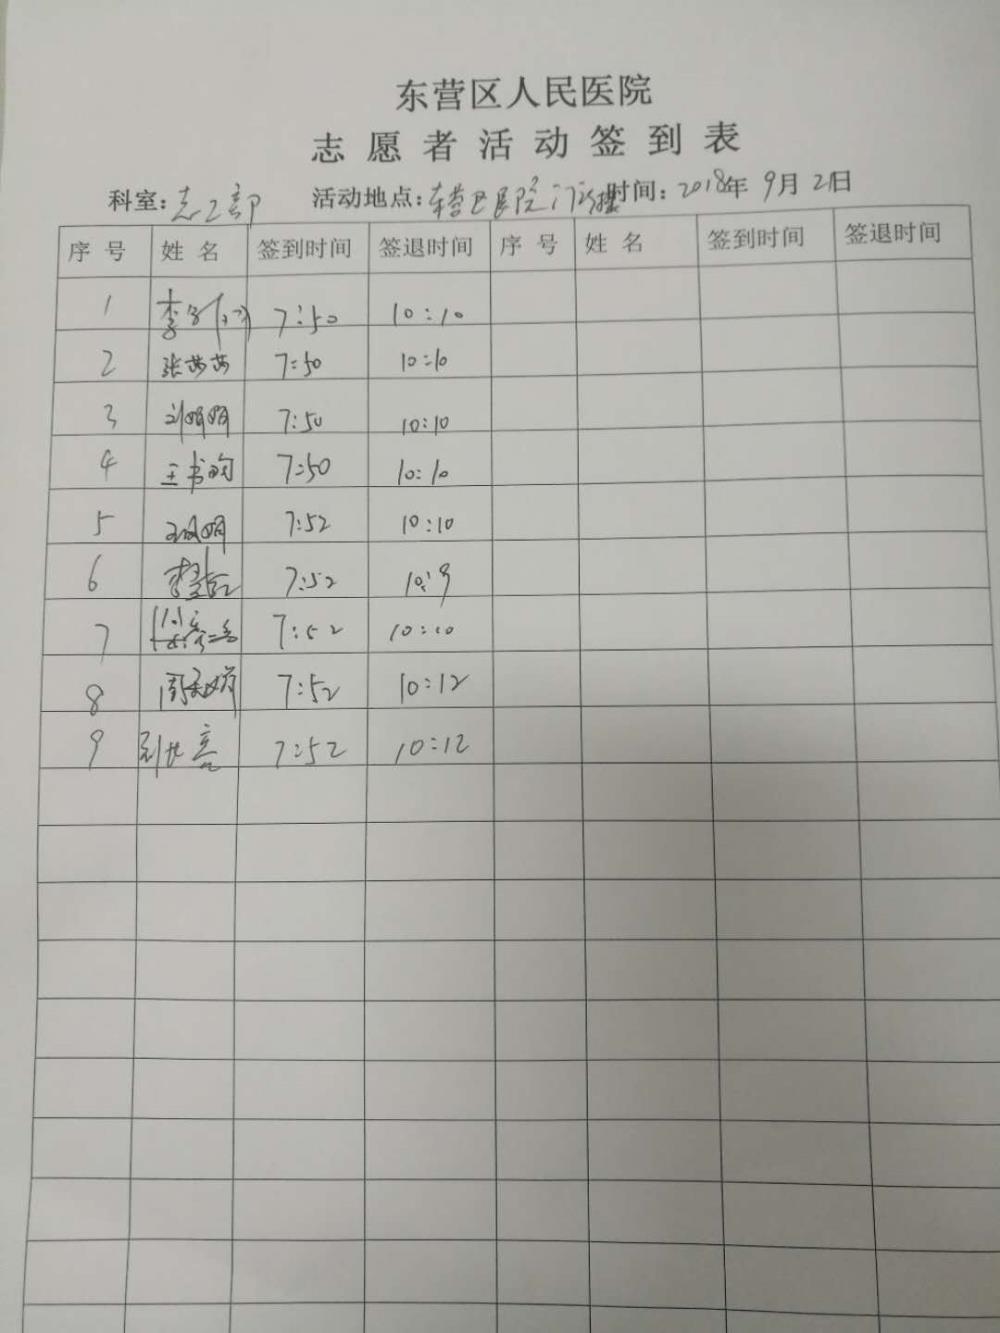 东营区人民医院
志愿者活动签到表
科室：志工部 活动地点：东营区医院门诊楼 时间：2018年9月2日
序号 姓名 签到时间 签退时间 序号 姓名 签到时间 签退时间
1 7:50 10:10
2 张茜茜 7:50 10:10
3 刘娟娟 7:50 10:10
4 王书 7:50 10:10
5 7:52 10:10
6 7:52 10:9
7 7:52 10:10
8 周 7:52 10:12
9 7:52 10:12